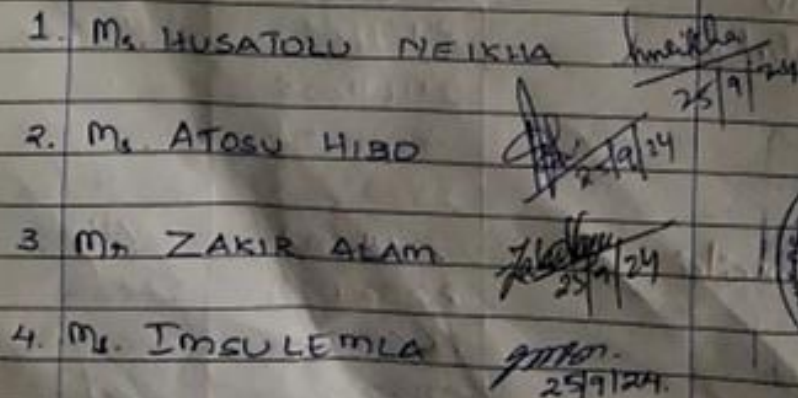 1. Ms HUSATOLU NEIKHA hneikha 25/9/24
2. Ms ATOSU HIBO 25/9/24
3 Mr ZAKIR ALAM 25/9/24
4. Ms. IMSULEMLA 25/9/24.